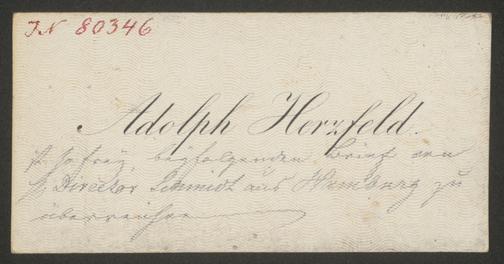 IN 80346
Adolph Herzfeld.
ist so frei, beyfolgenden Brief von
H. Director Schmidt aus Hamburg zu
überreichen